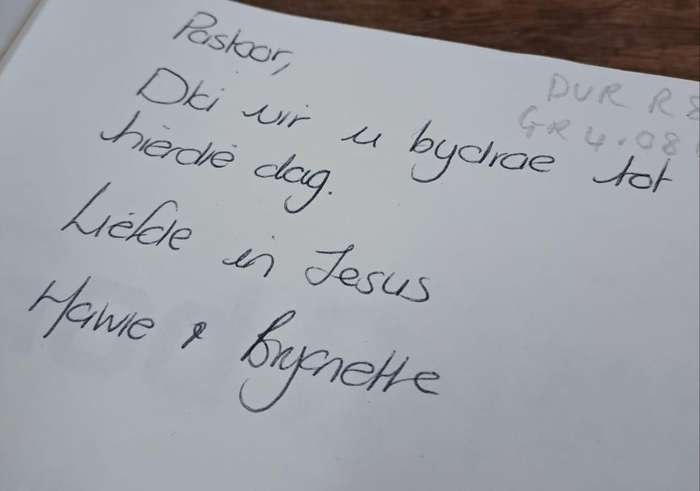 Pastoor,
DUR R 8
GR 4.08
Dki vir u bydrae tot
hierdie dag.
Liefde in Jesus
Hawie & Brynette